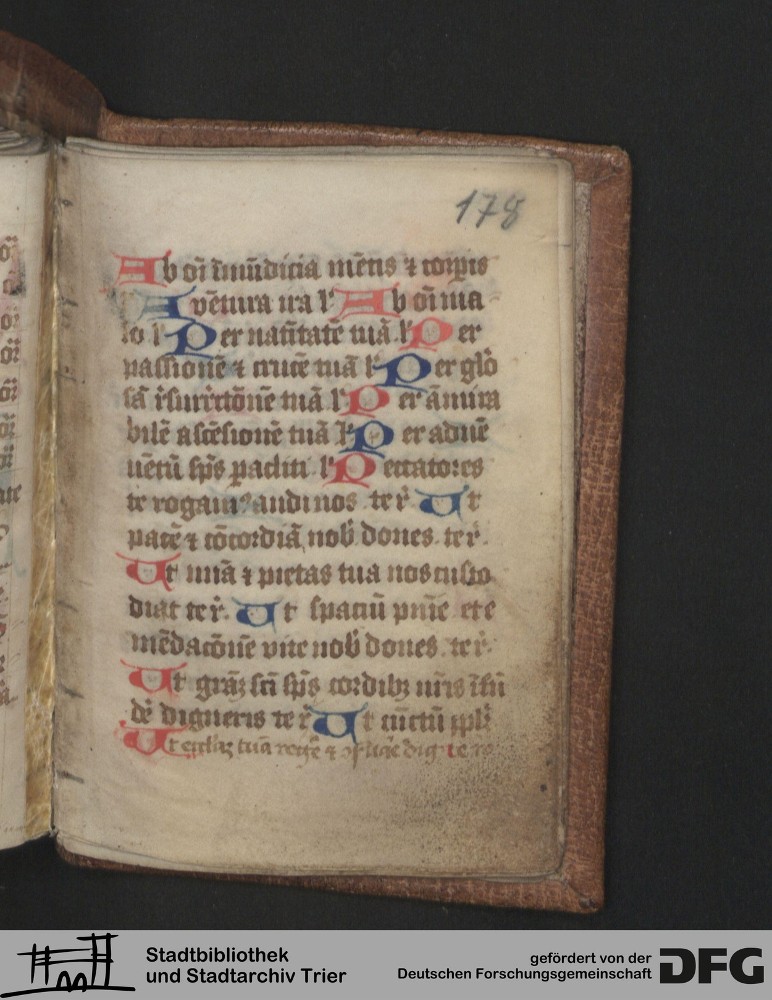 178
Ab oi īmūdicia mētis ⁊ corpis
A vētura ira lʼ Ab oī ma
lo lʼ Per natiitatē tuā lʼ Per
passionē ⁊ crucē tuā lʼ Per glo
sā rʼsurrctōnē tuā lʼ Per āmira
bilē ascēsionē tuā lʼ Per aduē
uētū sp̄s paclitī lʼ Peccatores
te rogamꝰ audi nos te rʼ Ut
pacē ⁊ cōcordiā nob̄ dones te rʼ
Ut mīa ⁊ pietas tua nos custo
diat te rʼ Ut spaciū pnīe et e
mēdacōnē vite nob̄ dones te rʼ
Ut grāꝫ scī sp̄s cordibꝫ nr̄is īfū
dē digneris te rʼ Ut cūctū ppl̄
Ut eccl̄aꝫ tuā regʼe ⁊
Stadtbibliothek
und Stadtarchiv Trier
gefördert von der
Deutschen Forschungsgemeinschaft DFG